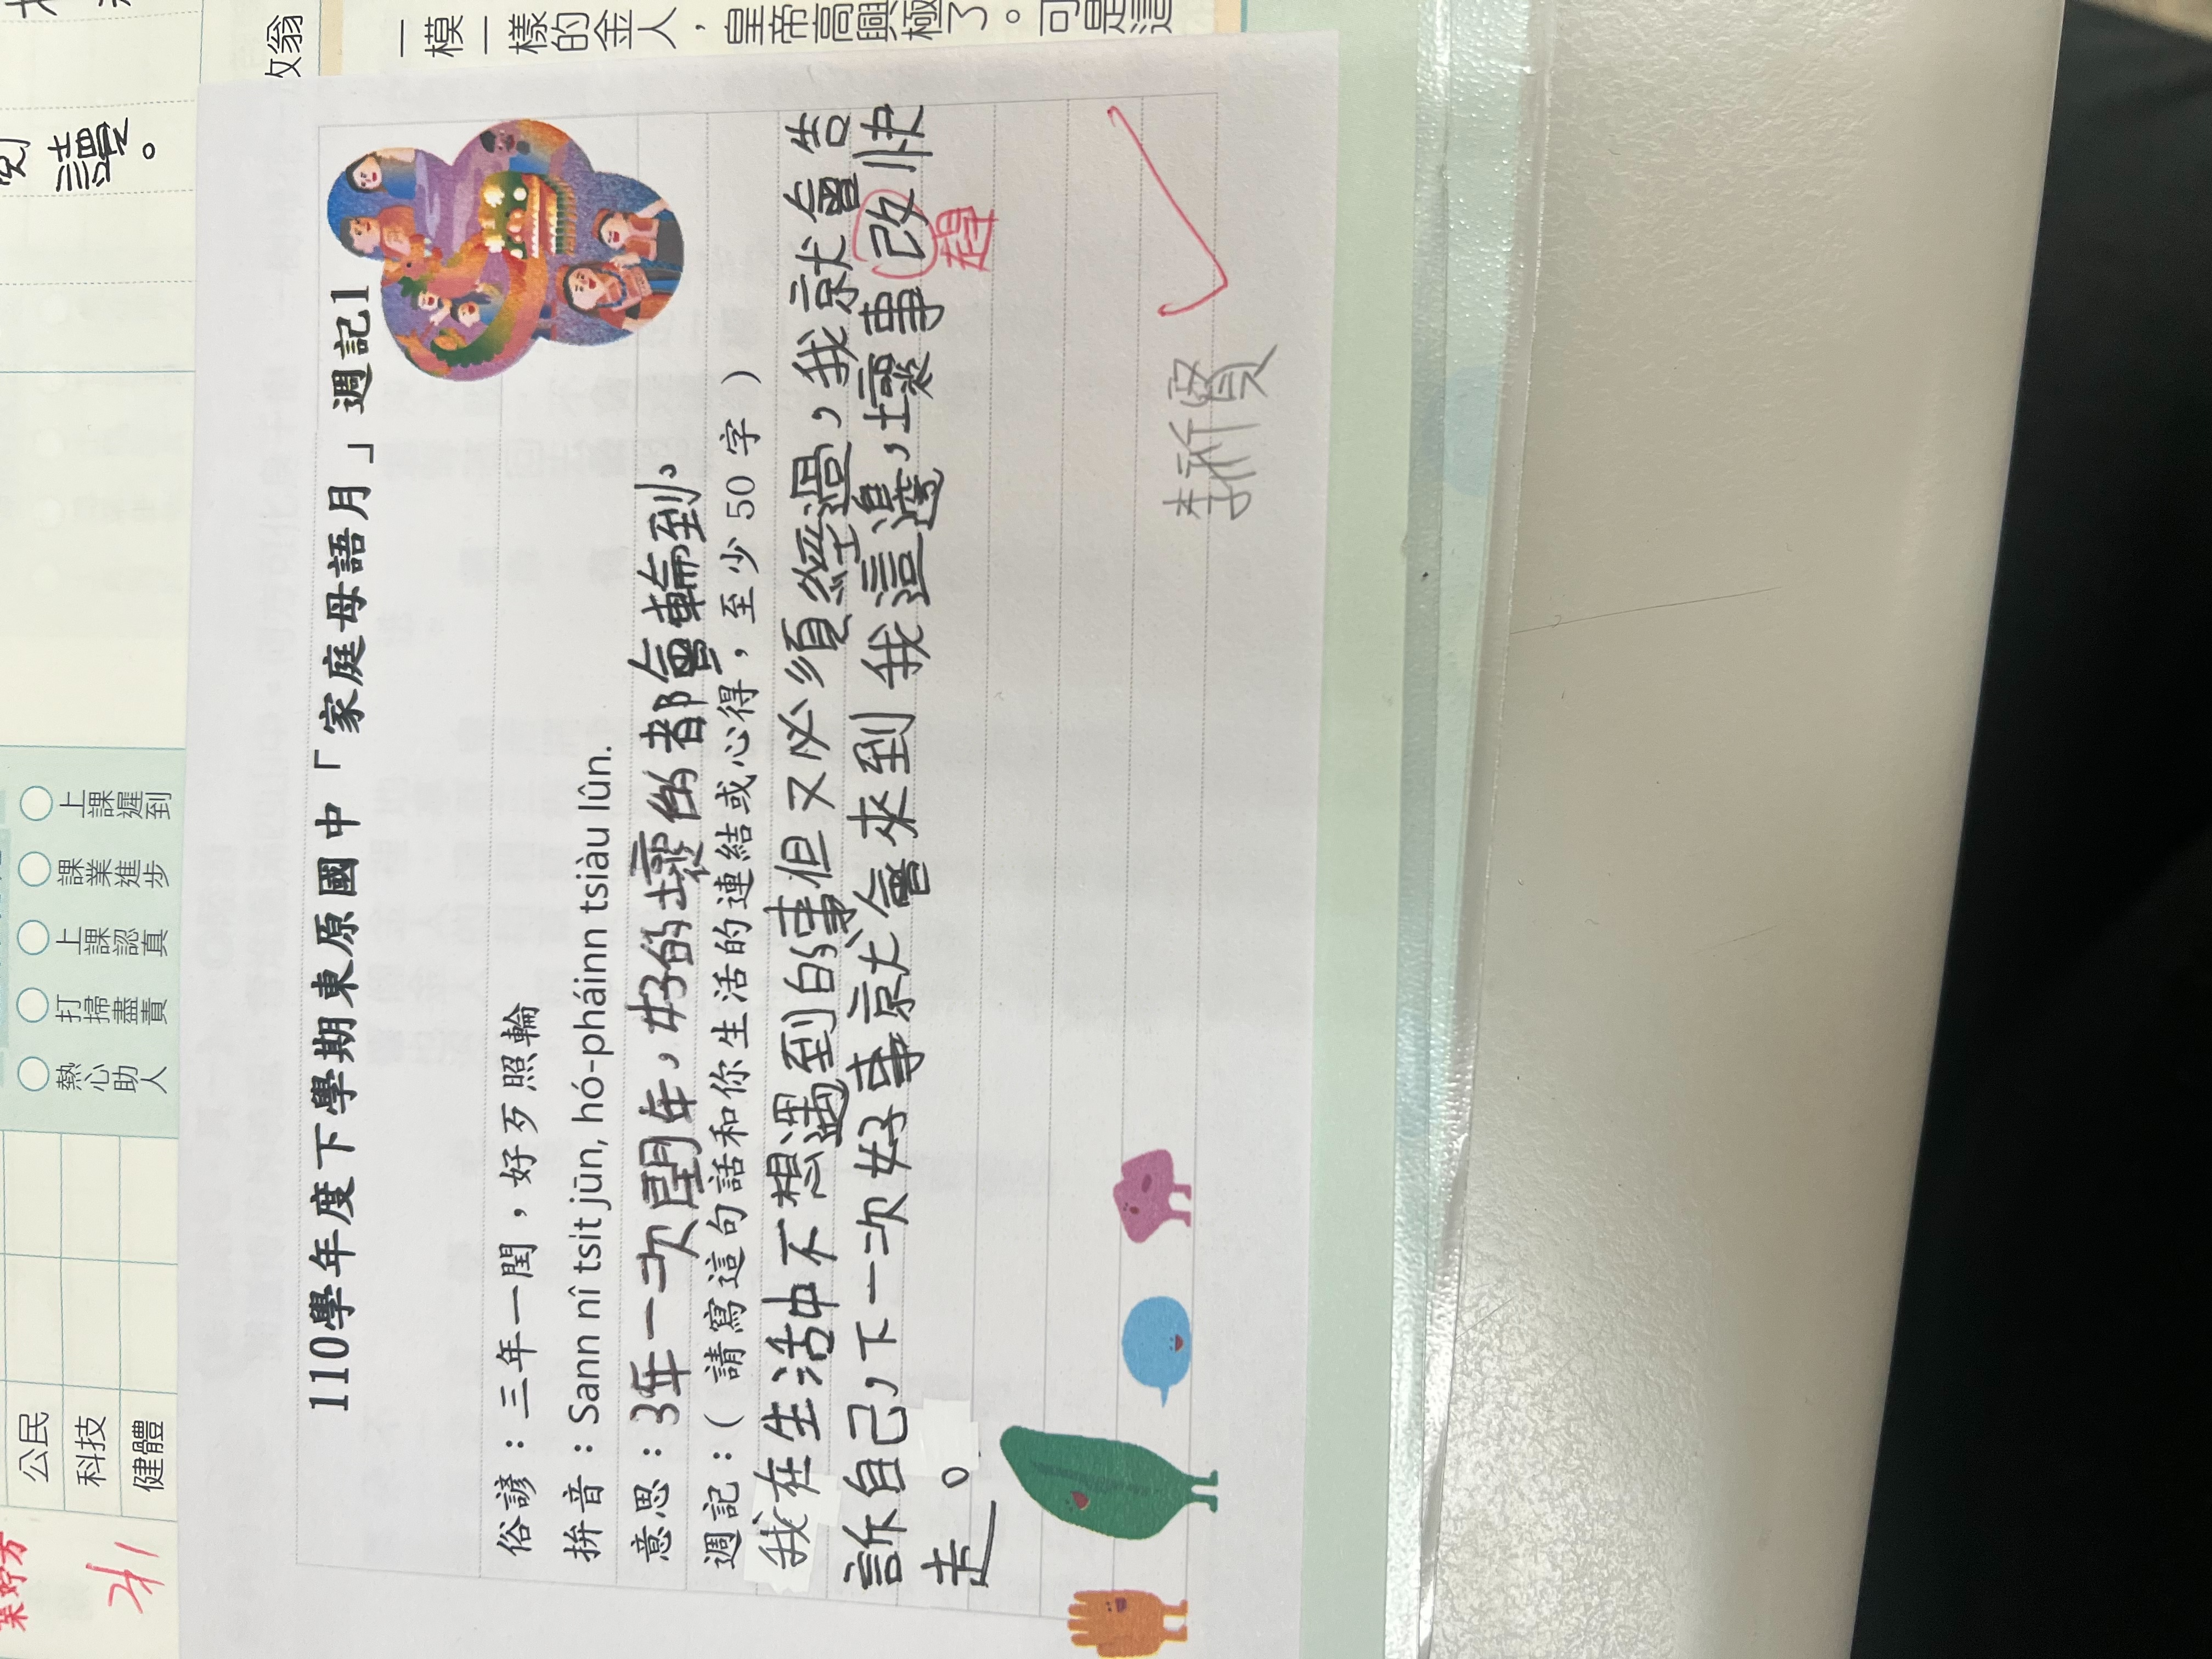 一模一樣的金人，皇帝高興極了。可是這
攵翁
讀。
熱心助人
打掃盡責
上課認真
課業進步
上課遲到
公民
科技
健體
110學年度下學期東原國中「家庭母語月」週記1
俗諺：三年一閏，好歹照輪
拚音：Sann nî tsit jūn, hó-pháinn tsiàu lûn.
意思：3年一次閏年，好的壞的都會輪到。
週記：( 請寫這句話和你生活的連結或心得，至少 50 字 )
我在生活中不想遇到的事但又必須經過，我就會告
訴自己，下一次好事就會來到我這邊，壞事改快
趕
走。